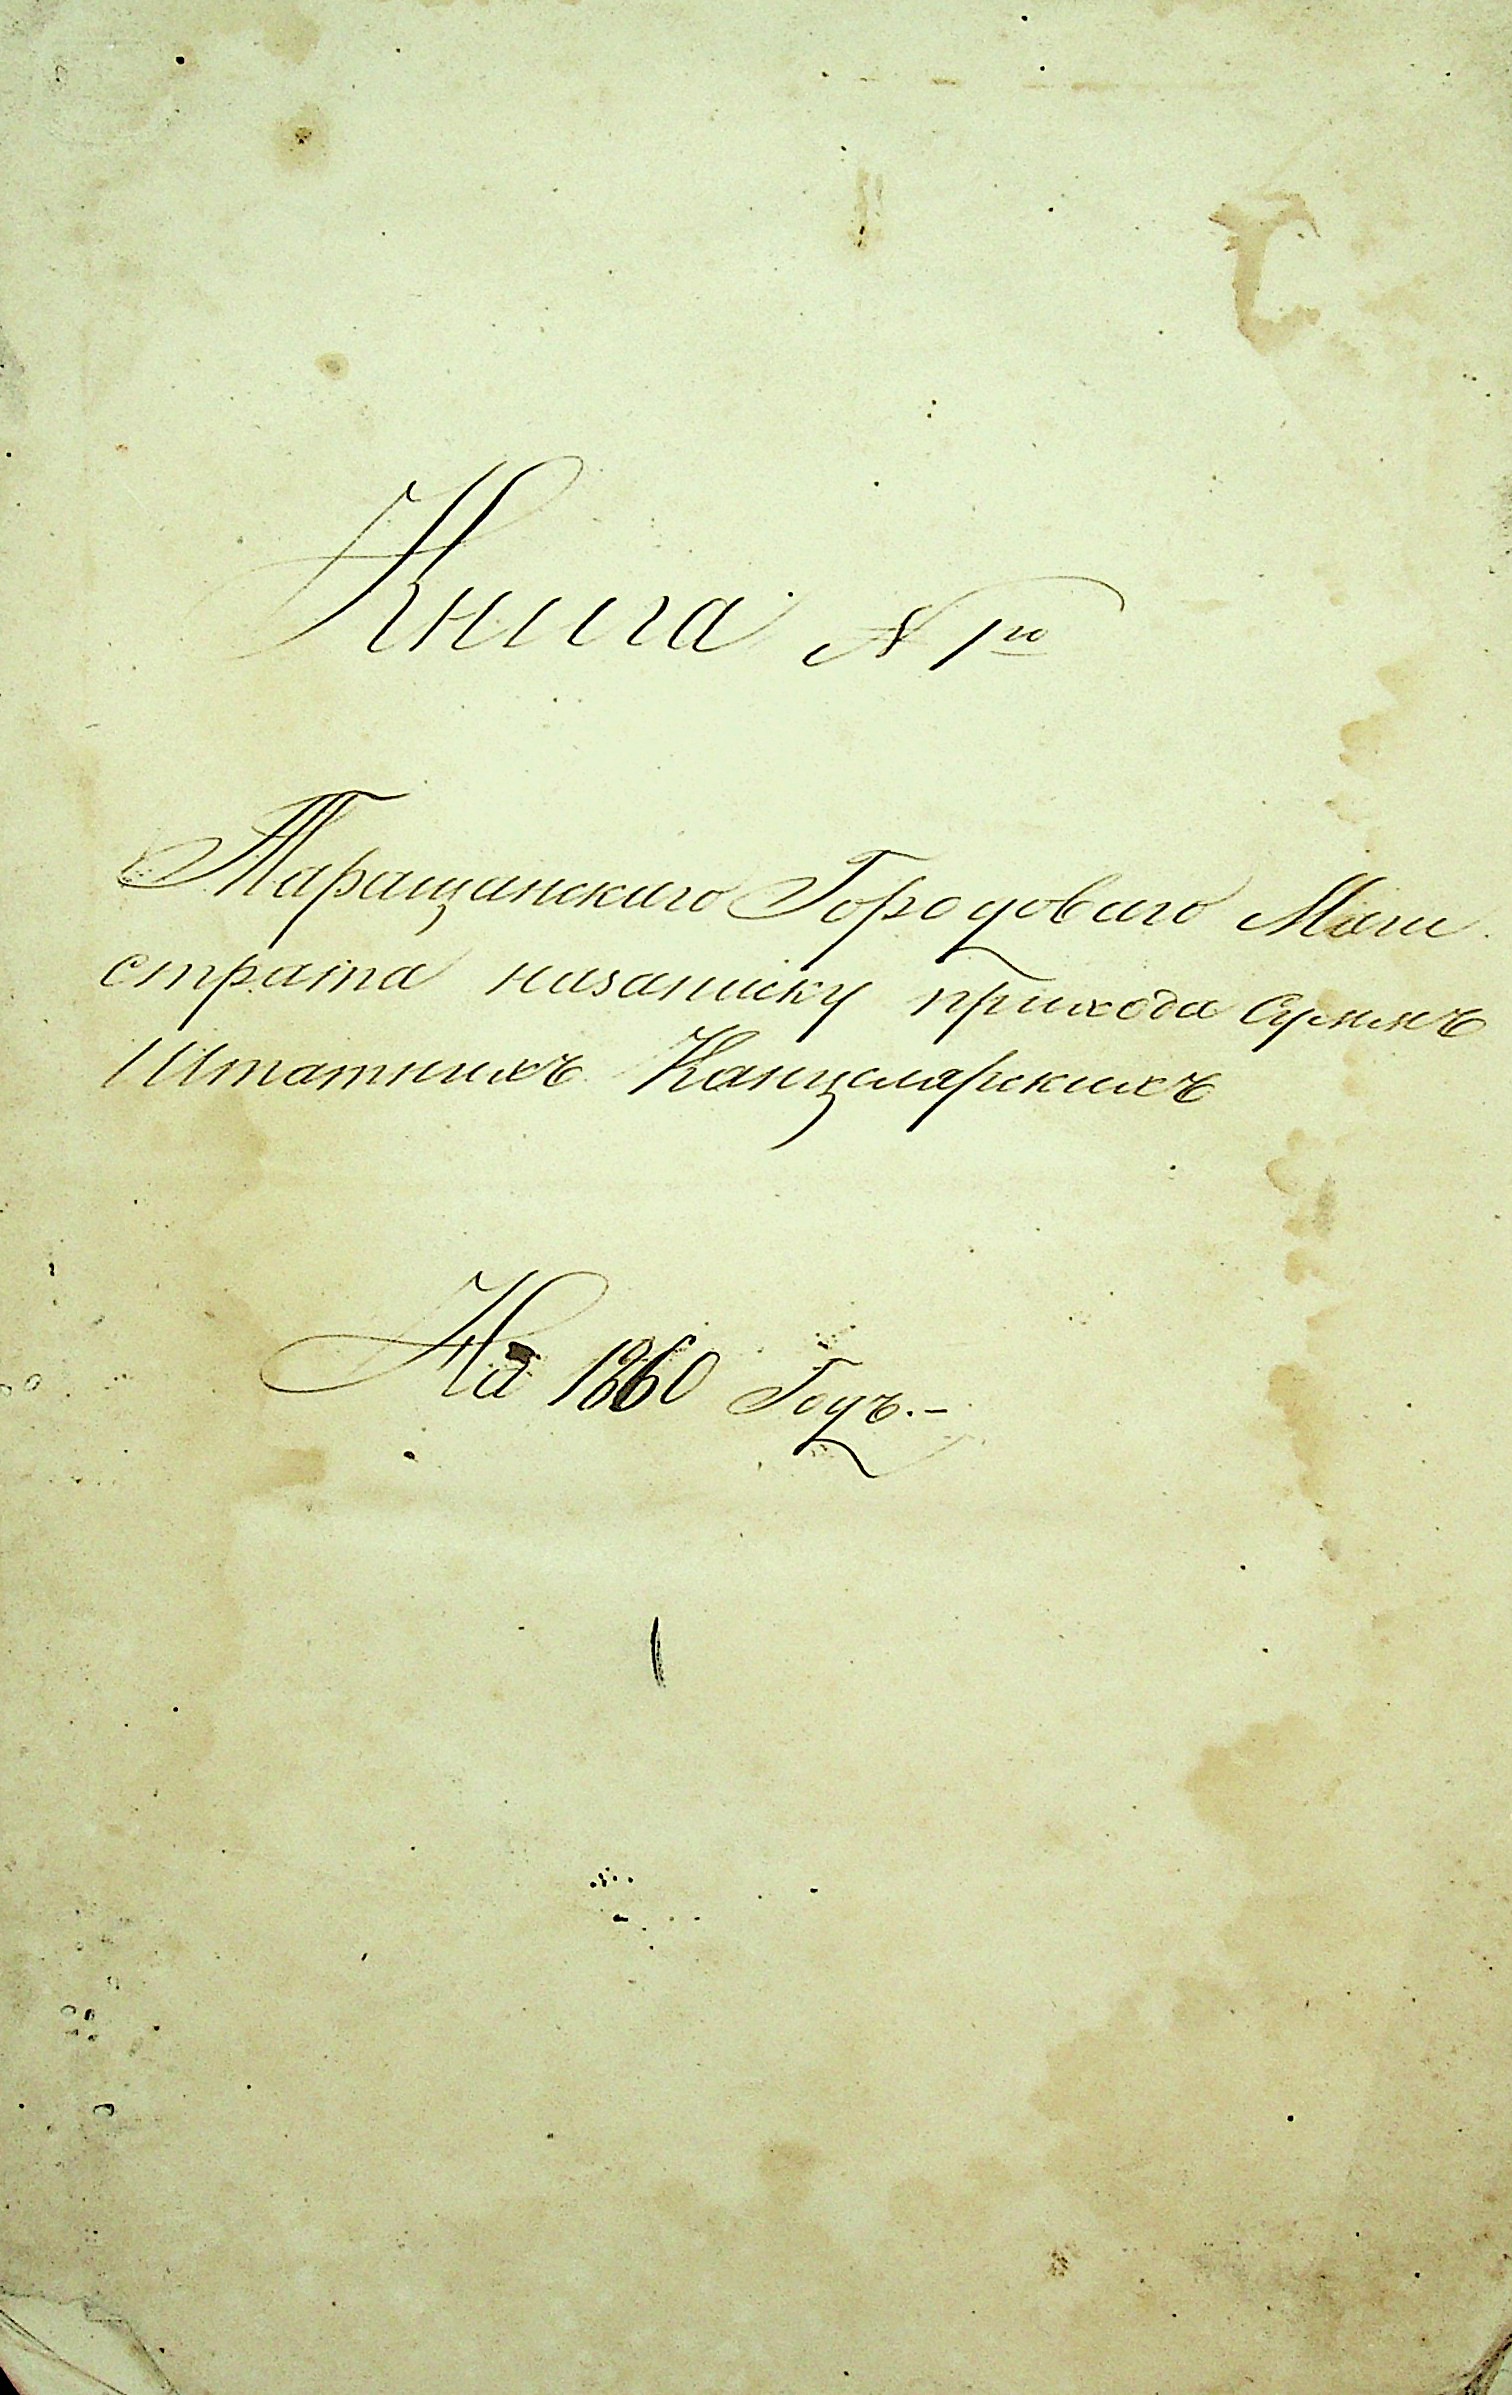 Книга № 1го
Таращанскаго Городоваго Маги
страта назаписку прихода Суммъ
Штатныхъ Канцелярскихъ
На 1860 Годъ.–